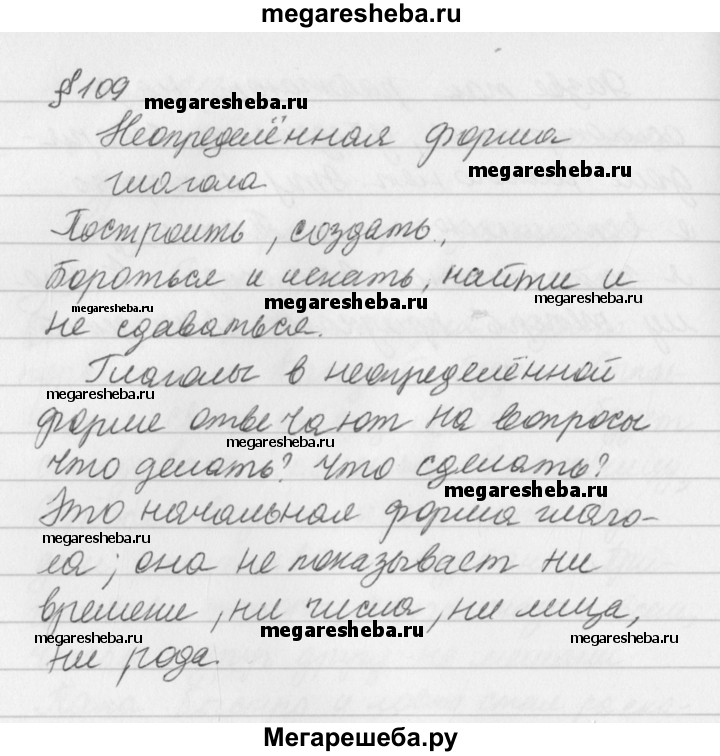 megaresheba.ru
§109
megaresheba.ru
Неопределённая форма
megaresheba.ru
глагола
Построить, создать.,
Бороться и искать, найти и
megaresheba.ru megaresheba.ru megaresheba.ru
не сдаваться.
Глаголы в неопределённой
megaresheba.ru
форме отвечают на вопросы
megaresheba.ru
Что делать? Что сделать?
megaresheba.ru
Это начальная форма глаго-
megaresheba.ru
ла; она не показывает ни
времени, ни числа, ни лица,
megaresheba.ru megaresheba.ru megaresheba.ru
ни рода.
Мегарешеба.ру